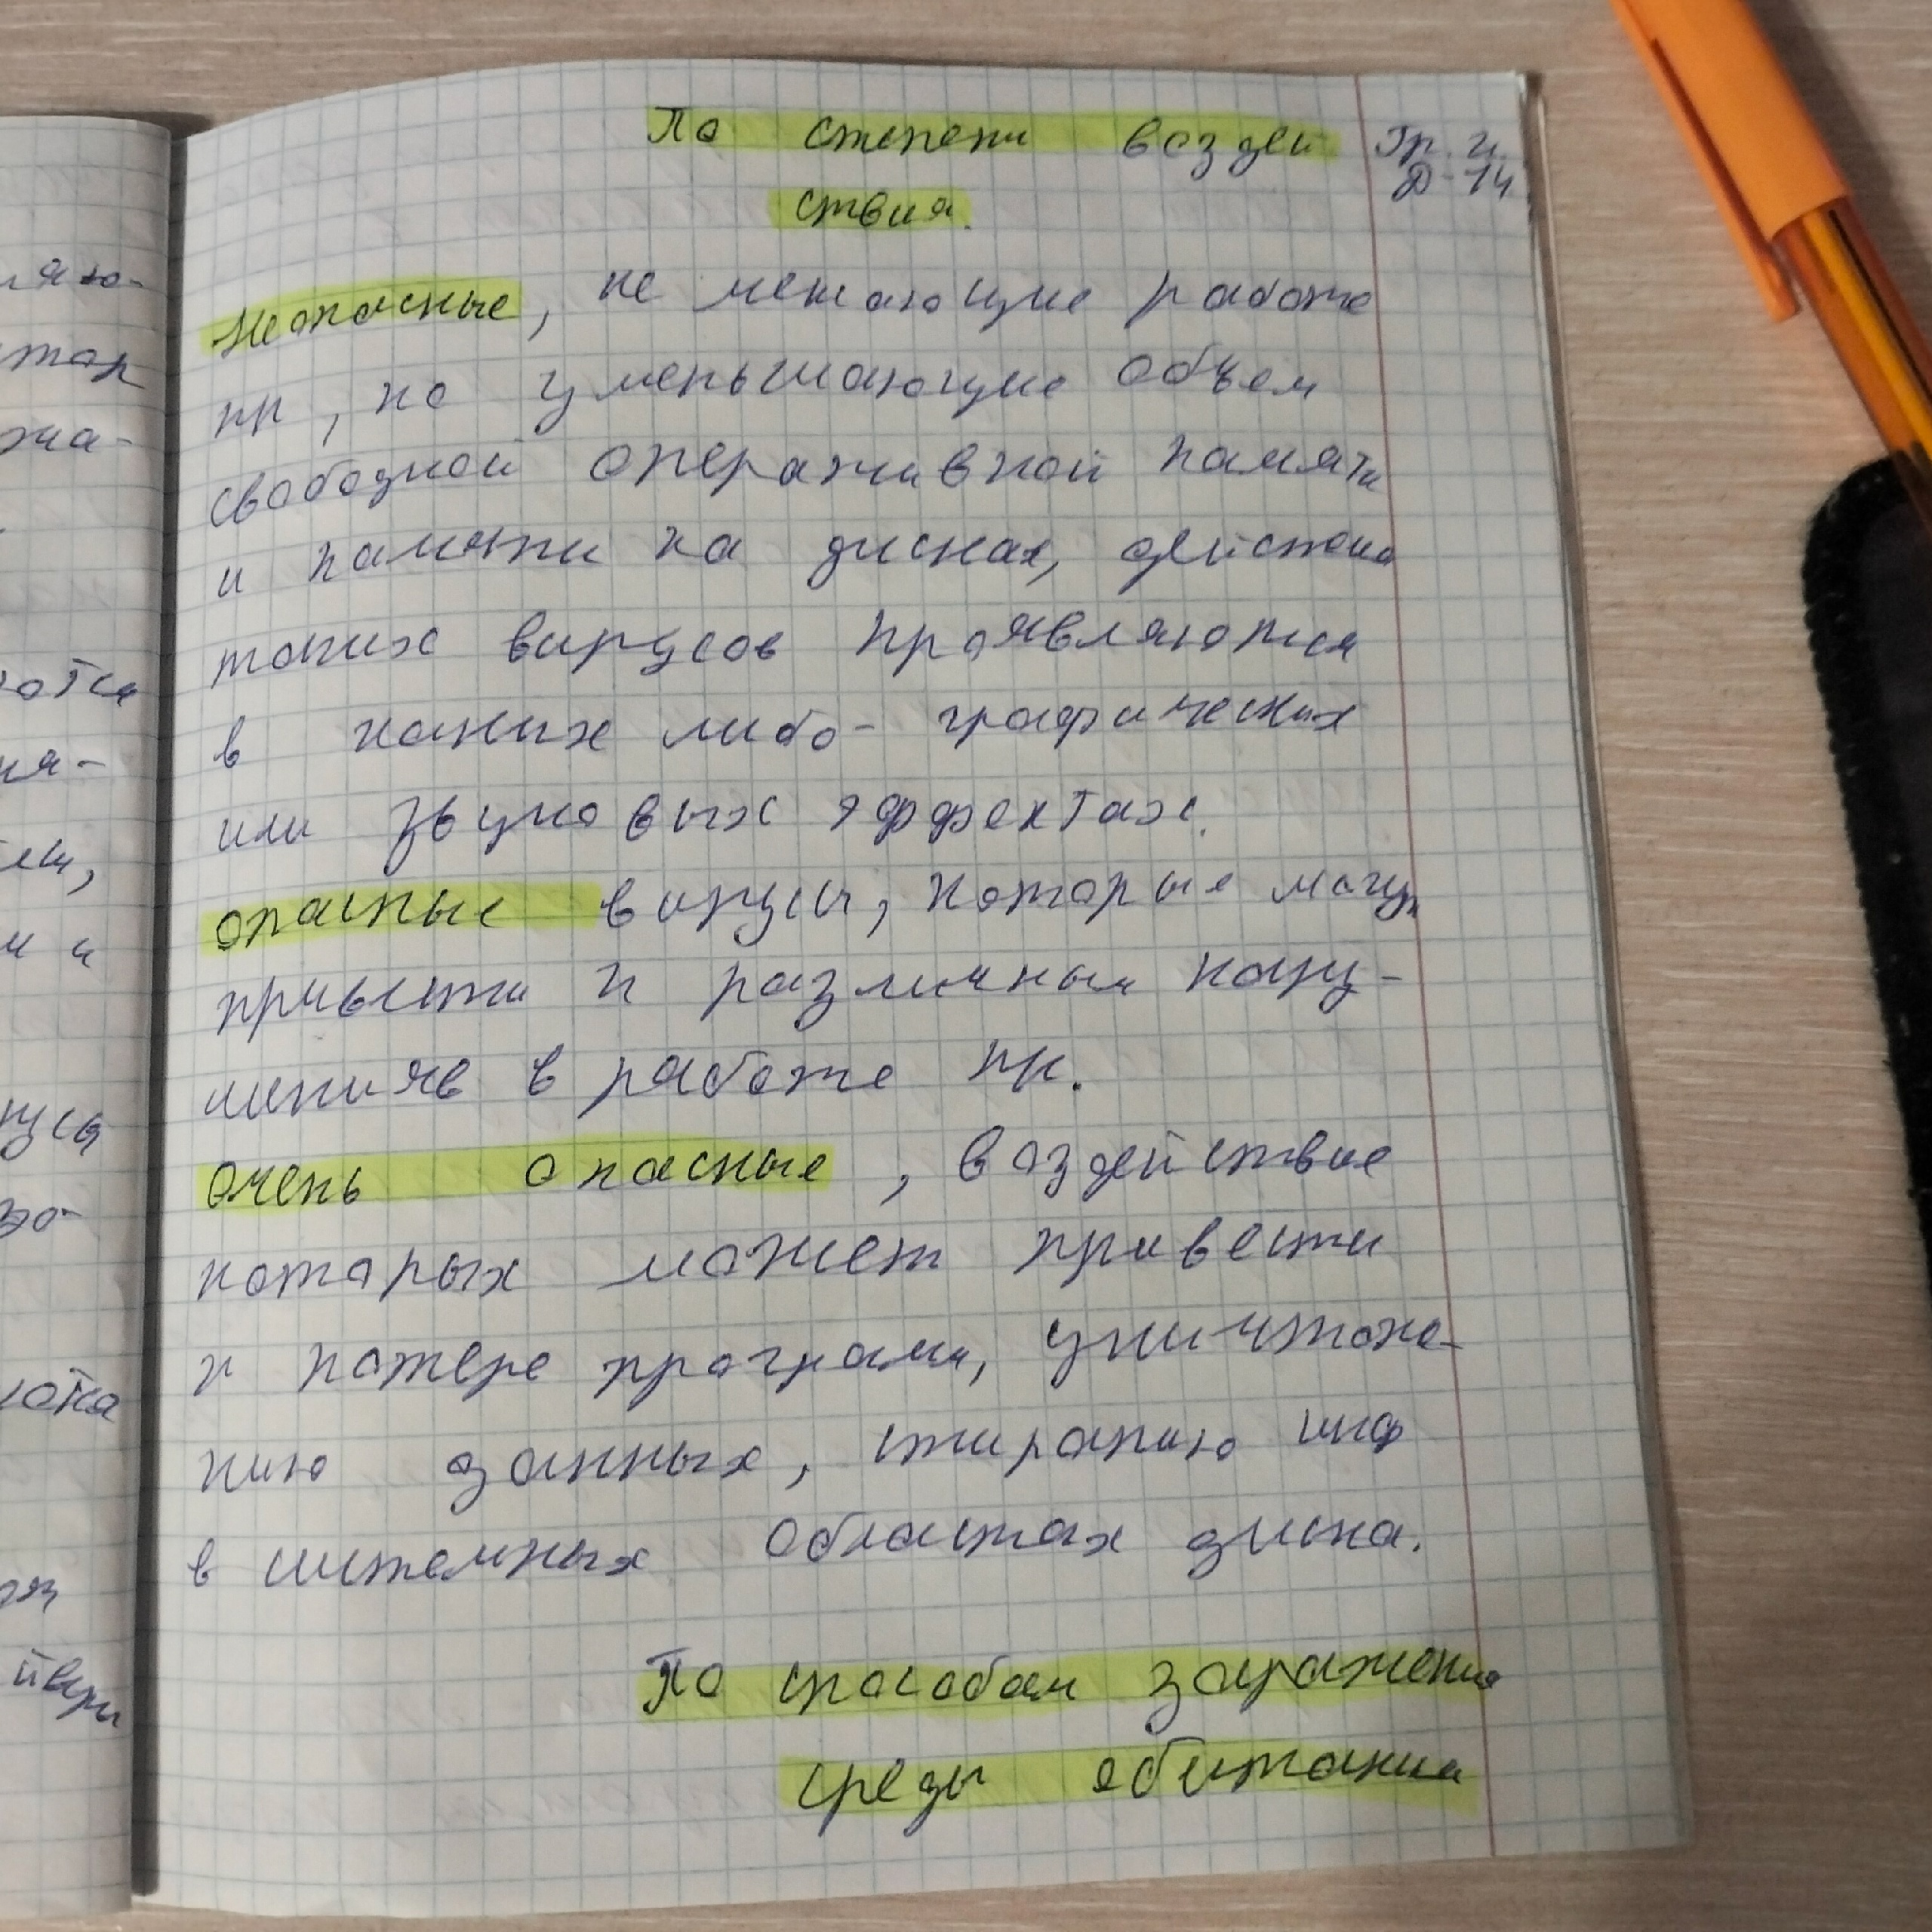 По степени воздей
ствия.
Гр. И.
Д-14
Неопасные, не мешающие работе
пк, но уменьшающие объем
свободной оперативной памяти
и памяти на дисках, действия
таких вирусов проявляются
в каких либо- графических
или звуковых эффектах.
опасные вирусы, которые могут
привести к различным нару-
шенияв в работе пк.
очень опасные, воздействие
которых может привести
к потере программ, уничтоже-
нию данных, стиранию инф
в системных областях диска.
По способам заражения
среды обитания